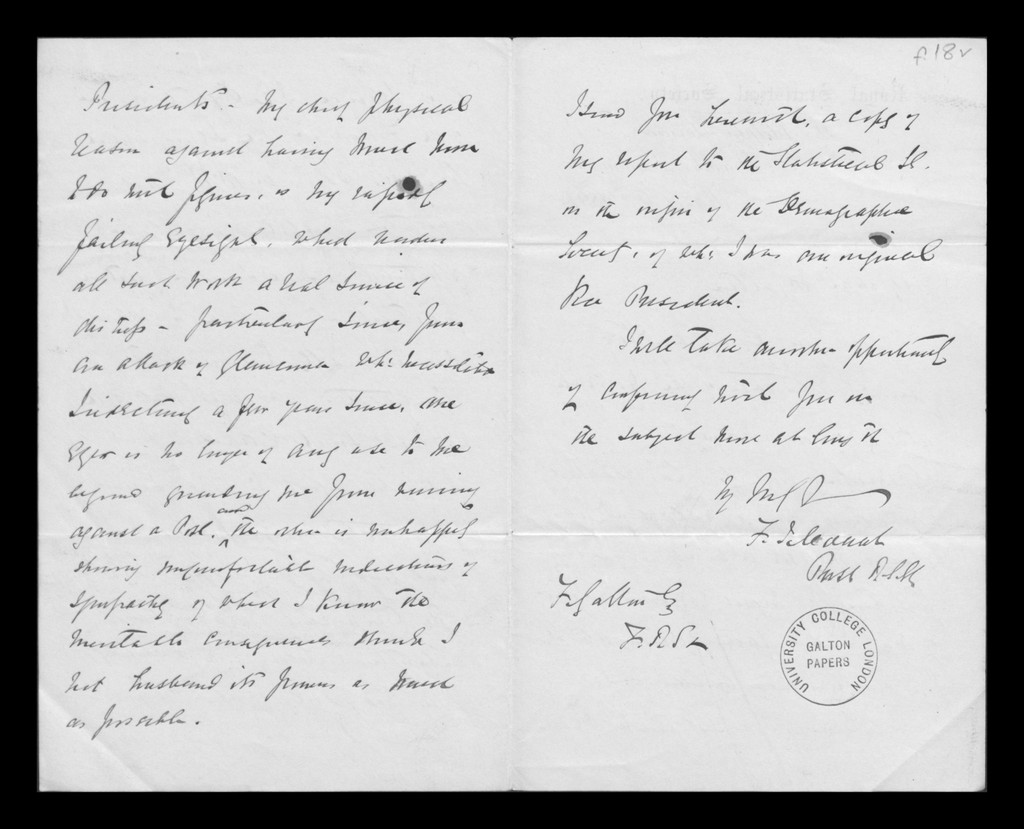 f.18v
Presidents – My chief physical
reason against having much more
to do with figures, is my rapidly
failing Eyesight, which renders
all such work a real source of
distress – particularly since, from
an attack of Glaucoma wh: necessitated
a few years since, one
Eye is no longer of any use to me
beyond guarding me from running
against a Post, and the other is unhappily
showing uncomfortable indications of
sympathy of which I know the
inevitable consequences should I
not husband its powers as much
as possible.
I send you herewith, a copy of
my report to the Statistical
on the origin of the Demographic
Society, of wh: I was one original
Vice President.
I will take another opportunity
of conferring with you on
the subject more at length
F.
F Galton Esq
F.R.S.
UNIVERSITY COLLEGE LONDON
GALTON
PAPERS